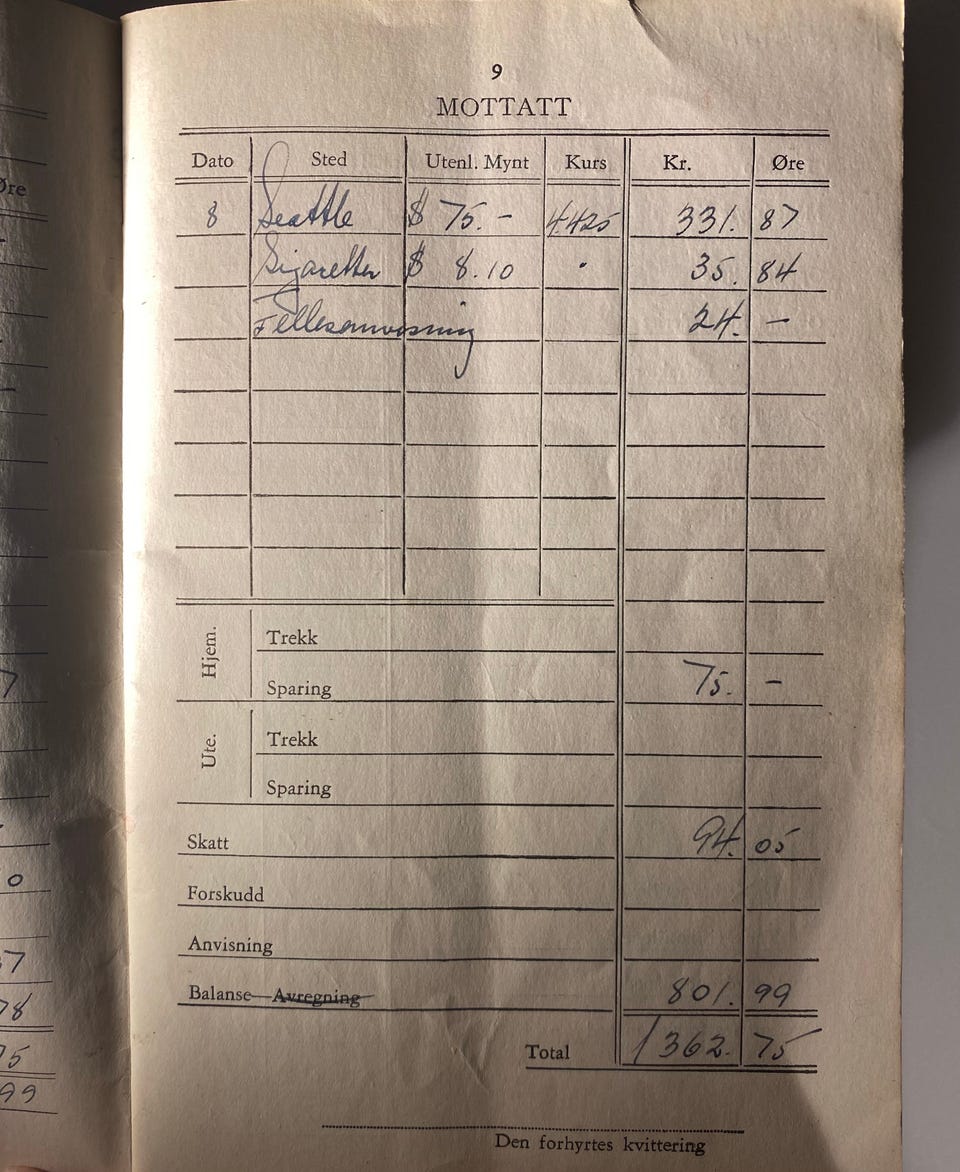 9
MOTTATT
Dato Sted Utenl. Mynt Kurs Kr. Øre
8 Seattle $ 75.- 4425 331. 87
Sigaretter $ 8.10 " 35. 84
Fellesanvisning 24. -
Hjem.
Trekk
Sparing 75. -
Ute.
Trekk
Sparing
Skatt 94. 05
Forskudd
Anvisning
Balanse Avregning 801. 99
Total 1362. 75
Den forhyrtes kvittering
Øre
7
0
37
78
75
99